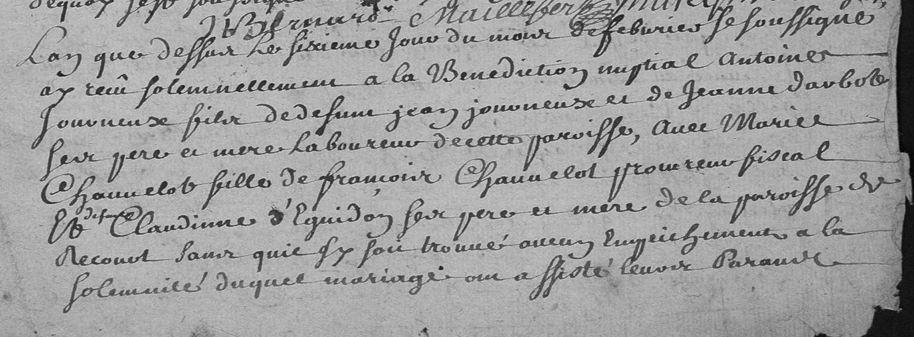 Maillefert
Lan que dessus Le sixieme Jour du mois de febvrier Je soussigne
ay receu solemnellement a la Benediction nuptial Antoine
Jouvneuse fils de defunt jean jouvneuse et de Jeanne darbote
ses pere et mere Laboureur de cette paroisse, Avec Marie
Chauvelot fille de francois Chauvelot procureur fiscal
Et Claudinne d'Eguidon ses pere et mere de la paroisse de
Recourt sans quil sy soit trouvé aucun Empeichement a la
solemnité duquel mariage ont assisté leurs Parans